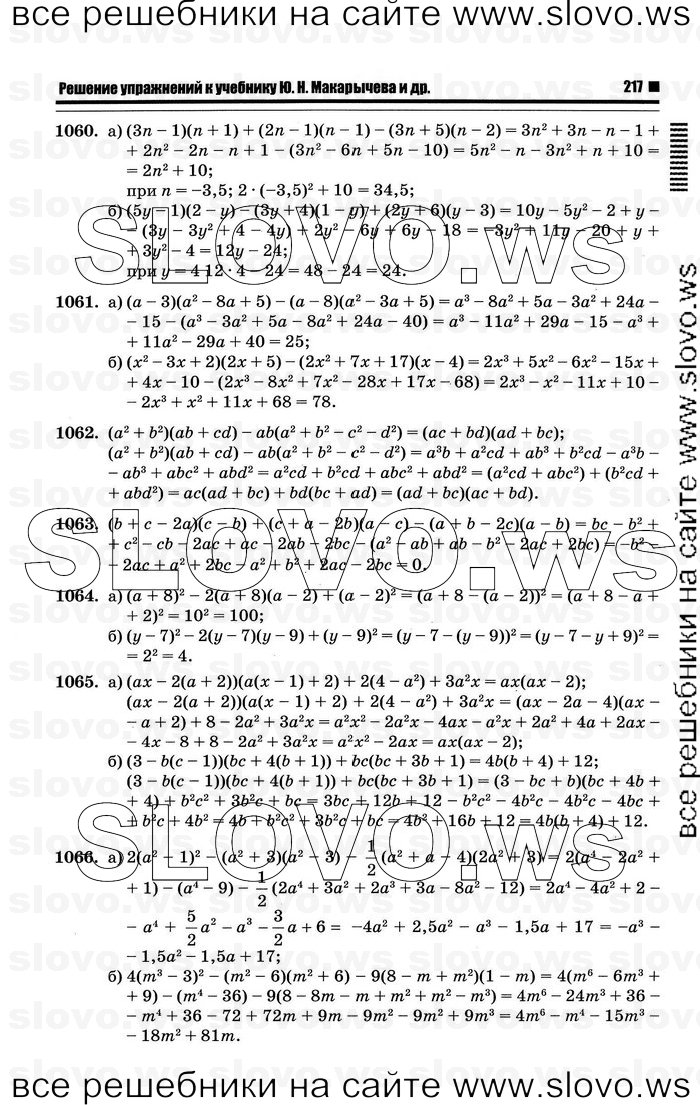 все решебники на сайте www.slovo.ws
Решение упражнений к учебнику Ю. Н. Макарычева и др. 217
1060. а) (3n − 1)(n + 1) + (2n − 1)(n − 1) − (3n + 5)(n − 2) = 3n² + 3n − n − 1 +
+ 2n² − 2n − n + 1 − (3n² − 6n + 5n − 10) = 5n² − n − 3n² + n + 10 =
= 2n² + 10;
при n = −3,5; 2 · (−3,5)² + 10 = 34,5;
б) (5y − 1)(2 − y) − (3y + 4)(1 − y) + (2y + 6)(y − 3) = 10y − 5y² − 2 + y −
− (3y − 3y² + 4 − 4y) + 2y² − 6y + 6y − 18 = −3y² + 11y − 20 + y +
+ 3y² − 4 = 12y − 24;
при y = 4 12 · 4 − 24 = 48 − 24 = 24.
1061. а) (a − 3)(a² − 8a + 5) − (a − 8)(a² − 3a + 5) = a³ − 8a² + 5a − 3a² + 24a −
− 15 − (a³ − 3a² + 5a − 8a² + 24a − 40) = a³ − 11a² + 29a − 15 − a³ +
+ 11a² − 29a + 40 = 25;
б) (x² − 3x + 2)(2x + 5) − (2x² + 7x + 17)(x − 4) = 2x³ + 5x² − 6x² − 15x +
+ 4x − 10 − (2x³ − 8x² + 7x² − 28x + 17x − 68) = 2x³ − x² − 11x + 10 −
− 2x³ + x² + 11x + 68 = 78.
1062. (a² + b²)(ab + cd) − ab(a² + b² − c² − d²) = (ac + bd)(ad + bc);
(a² + b²)(ab + cd) − ab(a² + b² − c² − d²) = a³b + a²cd + ab³ + b²cd − a³b −
− ab³ + abc² + abd² = a²cd + b²cd + abc² + abd² = (a²cd + abc²) + (b²cd +
+ abd²) = ac(ad + bc) + bd(bc + ad) = (ad + bc)(ac + bd).
1063. (b + c − 2a)(c − b) + (c + a − 2b)(a − c) − (a + b − 2c)(a − b) = bc − b² +
+ c² − cb − 2ac + ac − 2ab − 2bc − (a² − ab + ab − b² − 2ac + 2bc) = −b² −
− 2ac + a² + 2bc − a² + b² + 2ac − 2bc = 0.
1064. а) (a + 8)² − 2(a + 8)(a − 2) + (a − 2)² = (a + 8 − (a − 2))² = (a + 8 − a +
+ 2)² = 10² = 100;
б) (y − 7)² − 2(y − 7)(y − 9) + (y − 9)² = (y − 7 − (y − 9))² = (y − 7 − y + 9)² =
= 2² = 4.
1065. а) (ax − 2(a + 2))(a(x − 1) + 2) + 2(4 − a²) + 3a²x = ax(ax − 2);
(ax − 2(a + 2))(a(x − 1) + 2) + 2(4 − a²) + 3a²x = (ax − 2a − 4)(ax −
− a + 2) + 8 − 2a² + 3a²x = a²x² − 2a²x − 4ax − a²x + 2a² + 4a + 2ax −
− 4x − 8 + 8 − 2a² + 3a²x = a²x² − 2ax = ax(ax − 2);
б) (3 − b(c − 1))(bc + 4(b + 1)) + bc(bc + 3b + 1) = 4b(b + 4) + 12;
(3 − b(c − 1))(bc + 4(b + 1)) + bc(bc + 3b + 1) = (3 − bc + b)(bc + 4b +
+ 4) + b²c² + 3b²c + bc = 3bc + 12b + 12 − b²c² − 4b²c − 4b²c − 4bc +
+ b²c + 4b² = 4b + b²c² + 3b²c + bc = 4b² + 16b + 12 = 4b(b + 4) + 12.
1066. а) 2(a² − 1)² − (a² + 3)(a² − 3) − 1/2 (a² + a − 4)(2a² + 3) = 2(a⁴ − 2a² +
+ 1) − (a⁴ − 9) − 1/2 (2a⁴ + 3a² + 2a³ + 3a − 8a² − 12) = 2a⁴ − 4a² + 2 −
− a⁴ + 5/2 a² − a³ − 3/2 a + 6 = −4a² + 2,5a² − a³ − 1,5a + 17 = −a³ −
− 1,5a² − 1,5a + 17;
б) 4(m³ − 3)² − (m² − 6)(m² + 6) − 9(8 − m + m²)(1 − m) = 4(m⁶ − 6m³ +
+ 9) − (m⁴ − 36) − 9(8 − 8m − m + m² + m² − m³) = 4m⁶ − 24m³ + 36 −
− m⁴ + 36 − 72 + 72m + 9m − 9m² − 9m² + 9m³ = 4m⁶ − m⁴ − 15m³ −
− 18m² + 81m.
SLOVO.ws
SLOVO.ws
SLOVO.ws
все решебники на сайте www.slovo.ws
все решебники на сайте www.slovo.ws